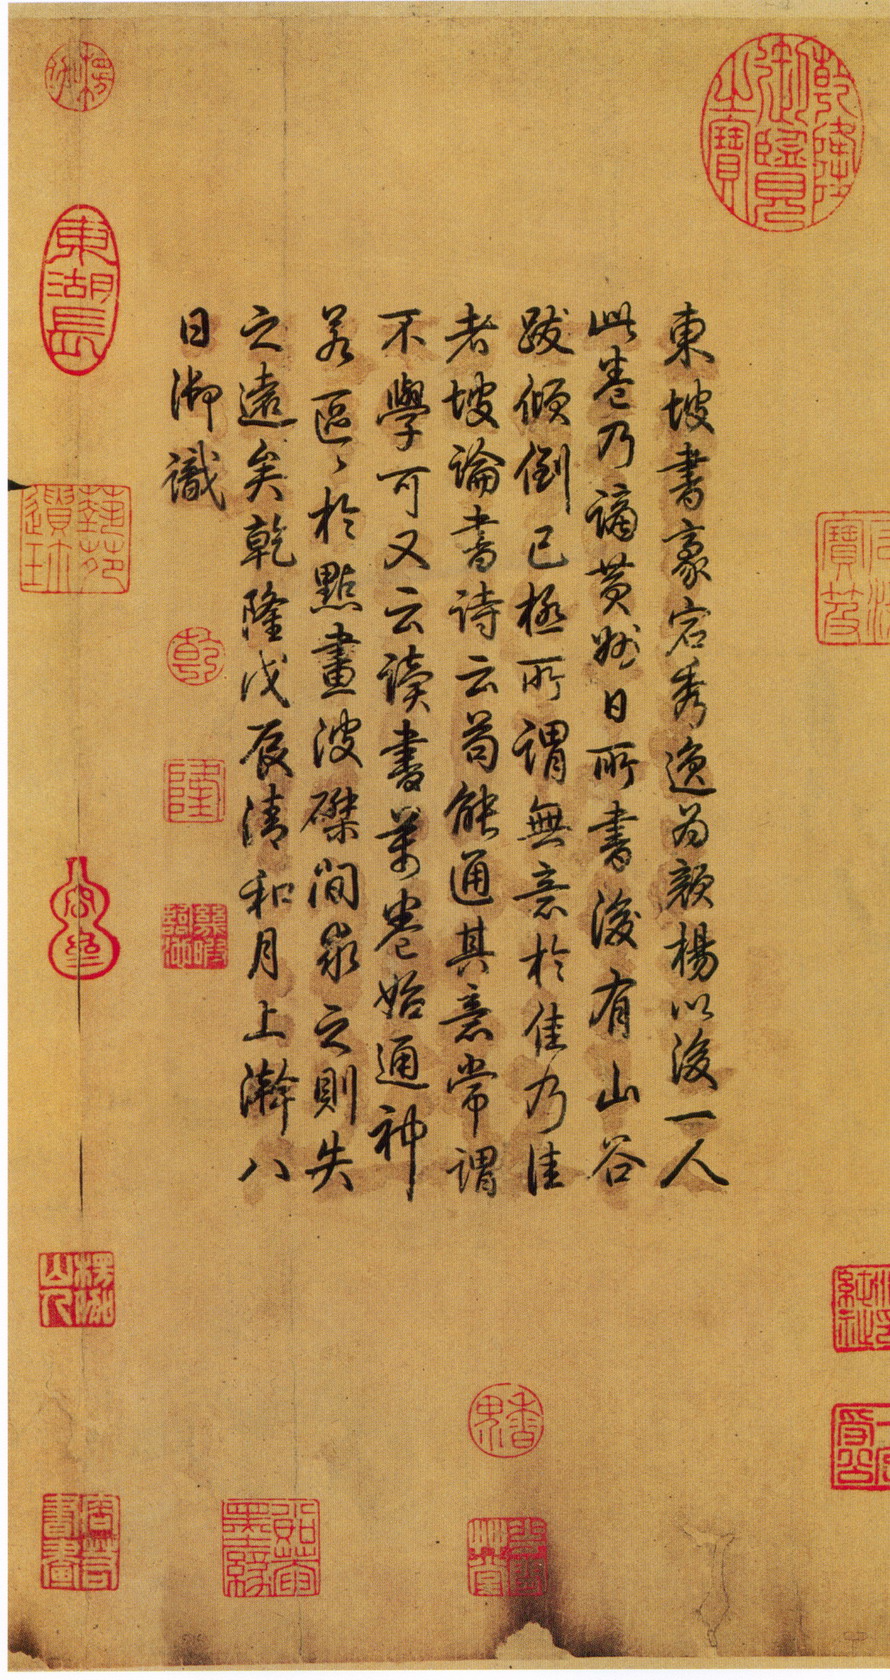 東坡書豪宕秀逸為顏楊以後一人
此卷乃謫黃州日所書後有山谷
跋傾倒已極所謂無意於佳乃佳
者坡論書詩云苟能通其意常謂
不學可又云讀書萬卷始通神
若區〻於點畫波磔間求之則失
之遠矣乾隆戊辰清和月上澣八
日御識
乾隆御覽之寶
東湖長
乾
隆